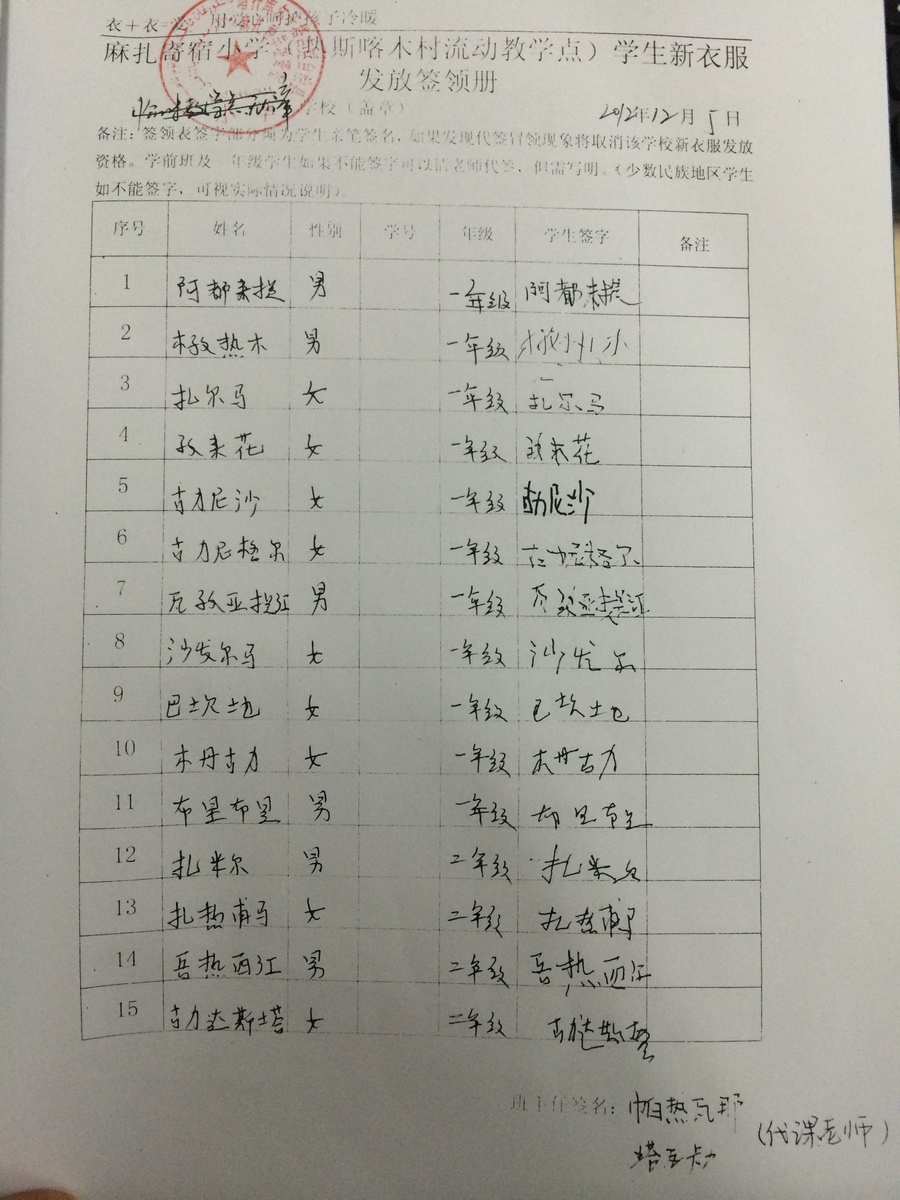 衣+衣=爱 用爱心呵护孩子冷暖
麻扎寄宿小学（热斯喀木村流动教学点）学生新衣服
发放签领册
学校（盖章） 2012年12月5日
备注：签领表签字部分须为学生亲笔签名，如果发现代签冒领现象将取消该学校新衣服发放
资格。学前班及一年级学生如果不能签字可以请老师代签，但需写明。（少数民族地区学生
如不能签字，可视实际情况说明）。
序号 姓名 性别 学号 年级 学生签字 备注
1 阿都来提 男 一年级 阿都来提
2 孜热木 男 一年级
3 扎尔马 女 一年级 扎尔马
4 孜来花 女 一年级 孜来花
5 古力尼沙 女 一年级 古力尼沙
6 古力尼格尔 女 一年级 古力尼格尔
7 瓦孜亚提江 男 一年级 瓦孜亚提江
8 沙发尔马 女 一年级 沙发尔
9 巴坎土也 女 一年级 巴坎土也
10 木丹古力 女 一年级 木丹古力
11 布里布里 男 一年级 布里布里
12 扎米尔 男 二年级 扎米尔
13 扎热甫马 女 二年级 扎热甫马
14 吾热西江 男 二年级 吾热西江
15 古力达斯塔 女 二年级 古力达斯塔
班主任签名：帕热瓦那
（代课老师）